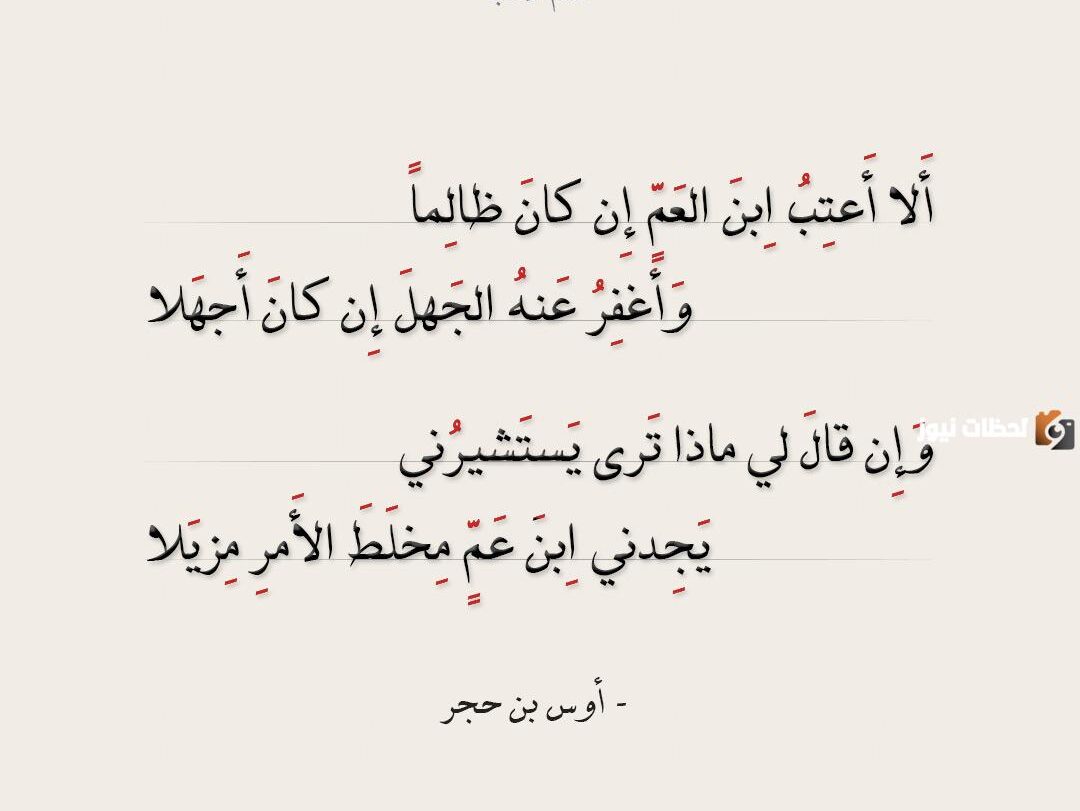 أَلا أَعتِبُ اِبنَ العَمِّ إِن كانَ ظالِماً
وَأَغفِرُ عَنهُ الجَهلَ إِن كانَ أَجهَلا
وَإِن قالَ لي ماذا تَرى يَستَشيرُني
يَجِدني اِبنَ عَمٍّ مِخلَطَ الأَمرِ مِزيَلا
- أوس بن حجر
لحظات نيوز